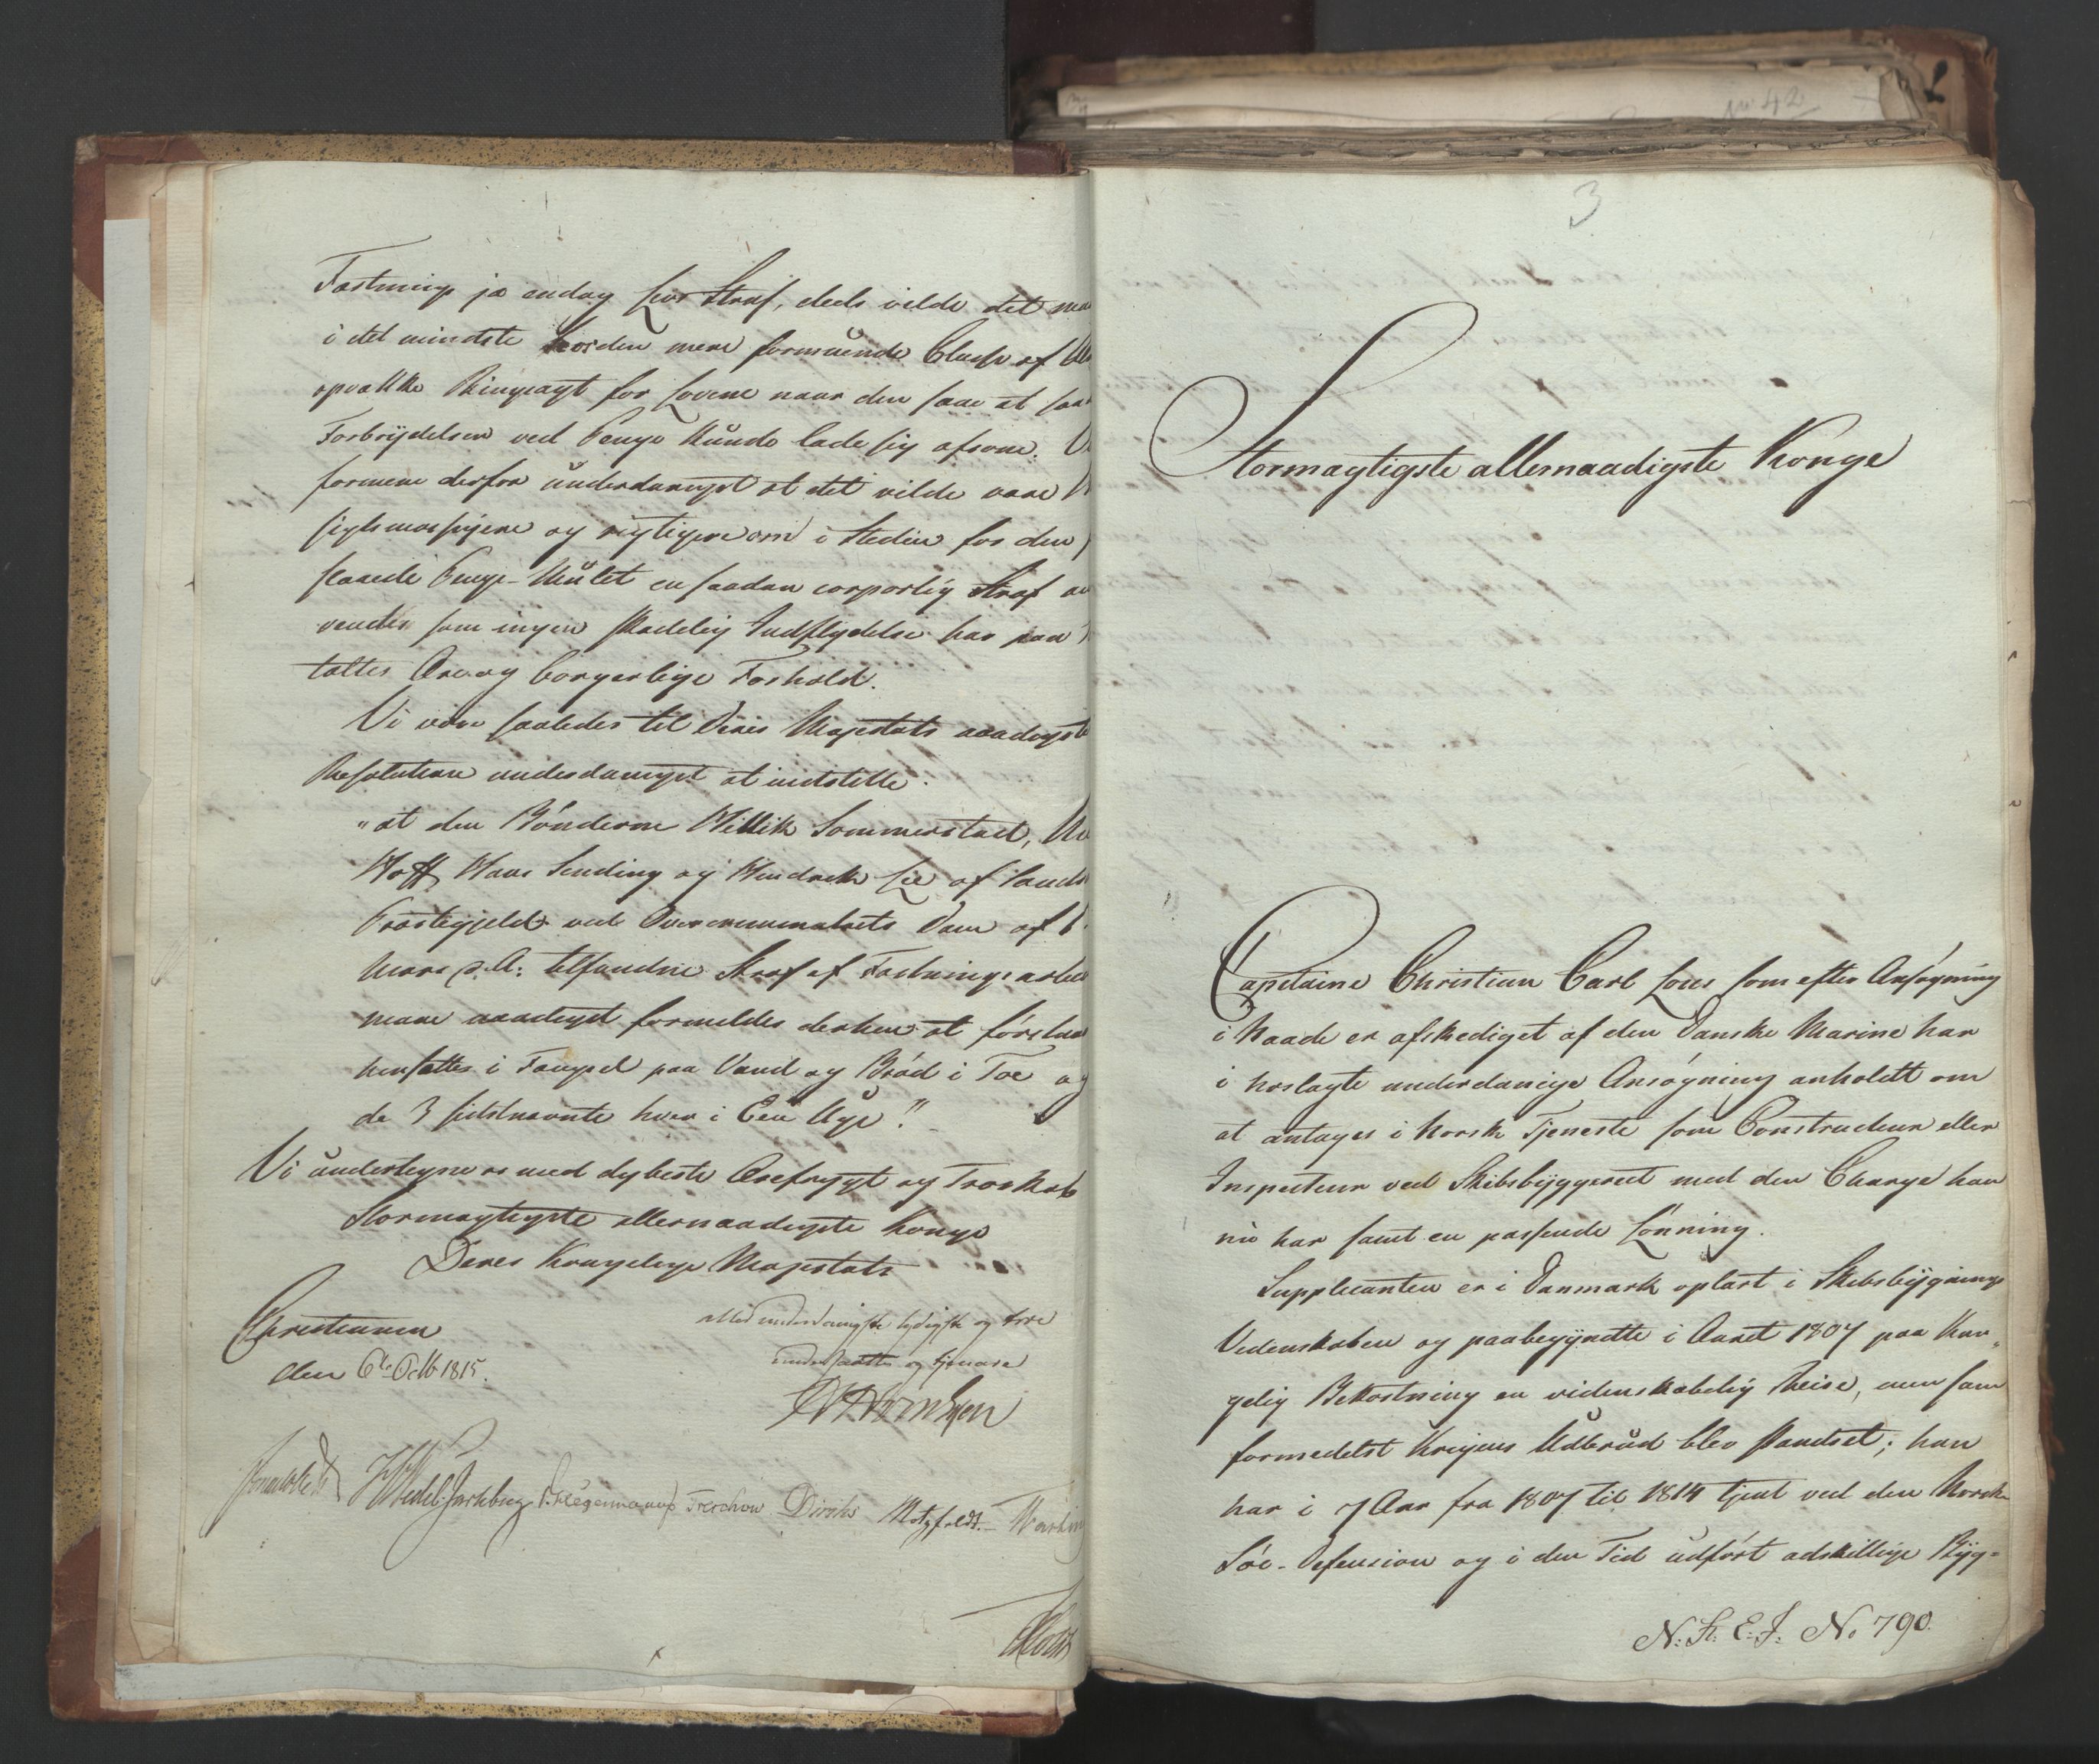 Fæstnings ja endog Livs Straf, deels vilde det
i det mindste hos den mere formuende Classe af
opvække Ringeagt for Lovene naar den saae at
Forbrydelser ved Penge kunde lade sig afsone.
formene derfor underdanigst at det vilde være
sigtsmæssigere og rigtigere om i Steden for den
Penge-Mulct en saadan corporlig Straf
vendes som ingen skadelig Indflydelse har paa
taltes Ære og borgerlige Forhold.
Vi vove saaledes til Deres Majestæts naadigste
Resolution underdanigst at indstille:
"at den Bönderne Sommerstad,
Hoff Hans Sending og Hendrek Lie af
Præstegjeld ved Overcriminalrets Dom af
Mars d. A: tilfundne Straf af Fæstningsarbei
maae naadigst formildes derhen at först
hensættes i Fængsel paa Vand og Bröd i Toe og
de 3 sidstnævnte hver i Een Uge."
Vi undertegne os med dybeste Ærefrygt og Troskab
Stormægtigste allernaadigste Konge
Deres Kongelige Majestæts
Christiania
den 6te Octb 1815.
allerunderdanigste lydigste og troe
undersaatter og tjenere
Sommerhielm
HWedel Jarlsberg Hegermann Treschow Diriks Motzfeldt
3
Stormægtigste allernaadigste Konge
Capitaine Christian Carl Lous som efter Ansögning
i Naade er afskediget af den Danske Marine har
i hoslagte underdanige Ansögning anholdt om
at antages i Norsk Tjeneste som Constructeur eller
Inspecteur ved Skibsbyggeriet med den Charge han
nu har samt en passende Lönning.
Supplicanten er i Danmark oplært i Skibsbygnings
Videnskaben og paabegyndte i Aaret 1807 paa Kon„
gelig Bekostning en videnskabelig Reise, men som
formedelst Krigens Udbrud blev standset; han
har i 7 Aar fra 1807 til 1814 tjent ved den Norske
Söe-Defension og i den Tid udfört adskillige Byg=
N: St: E: J: No 790.